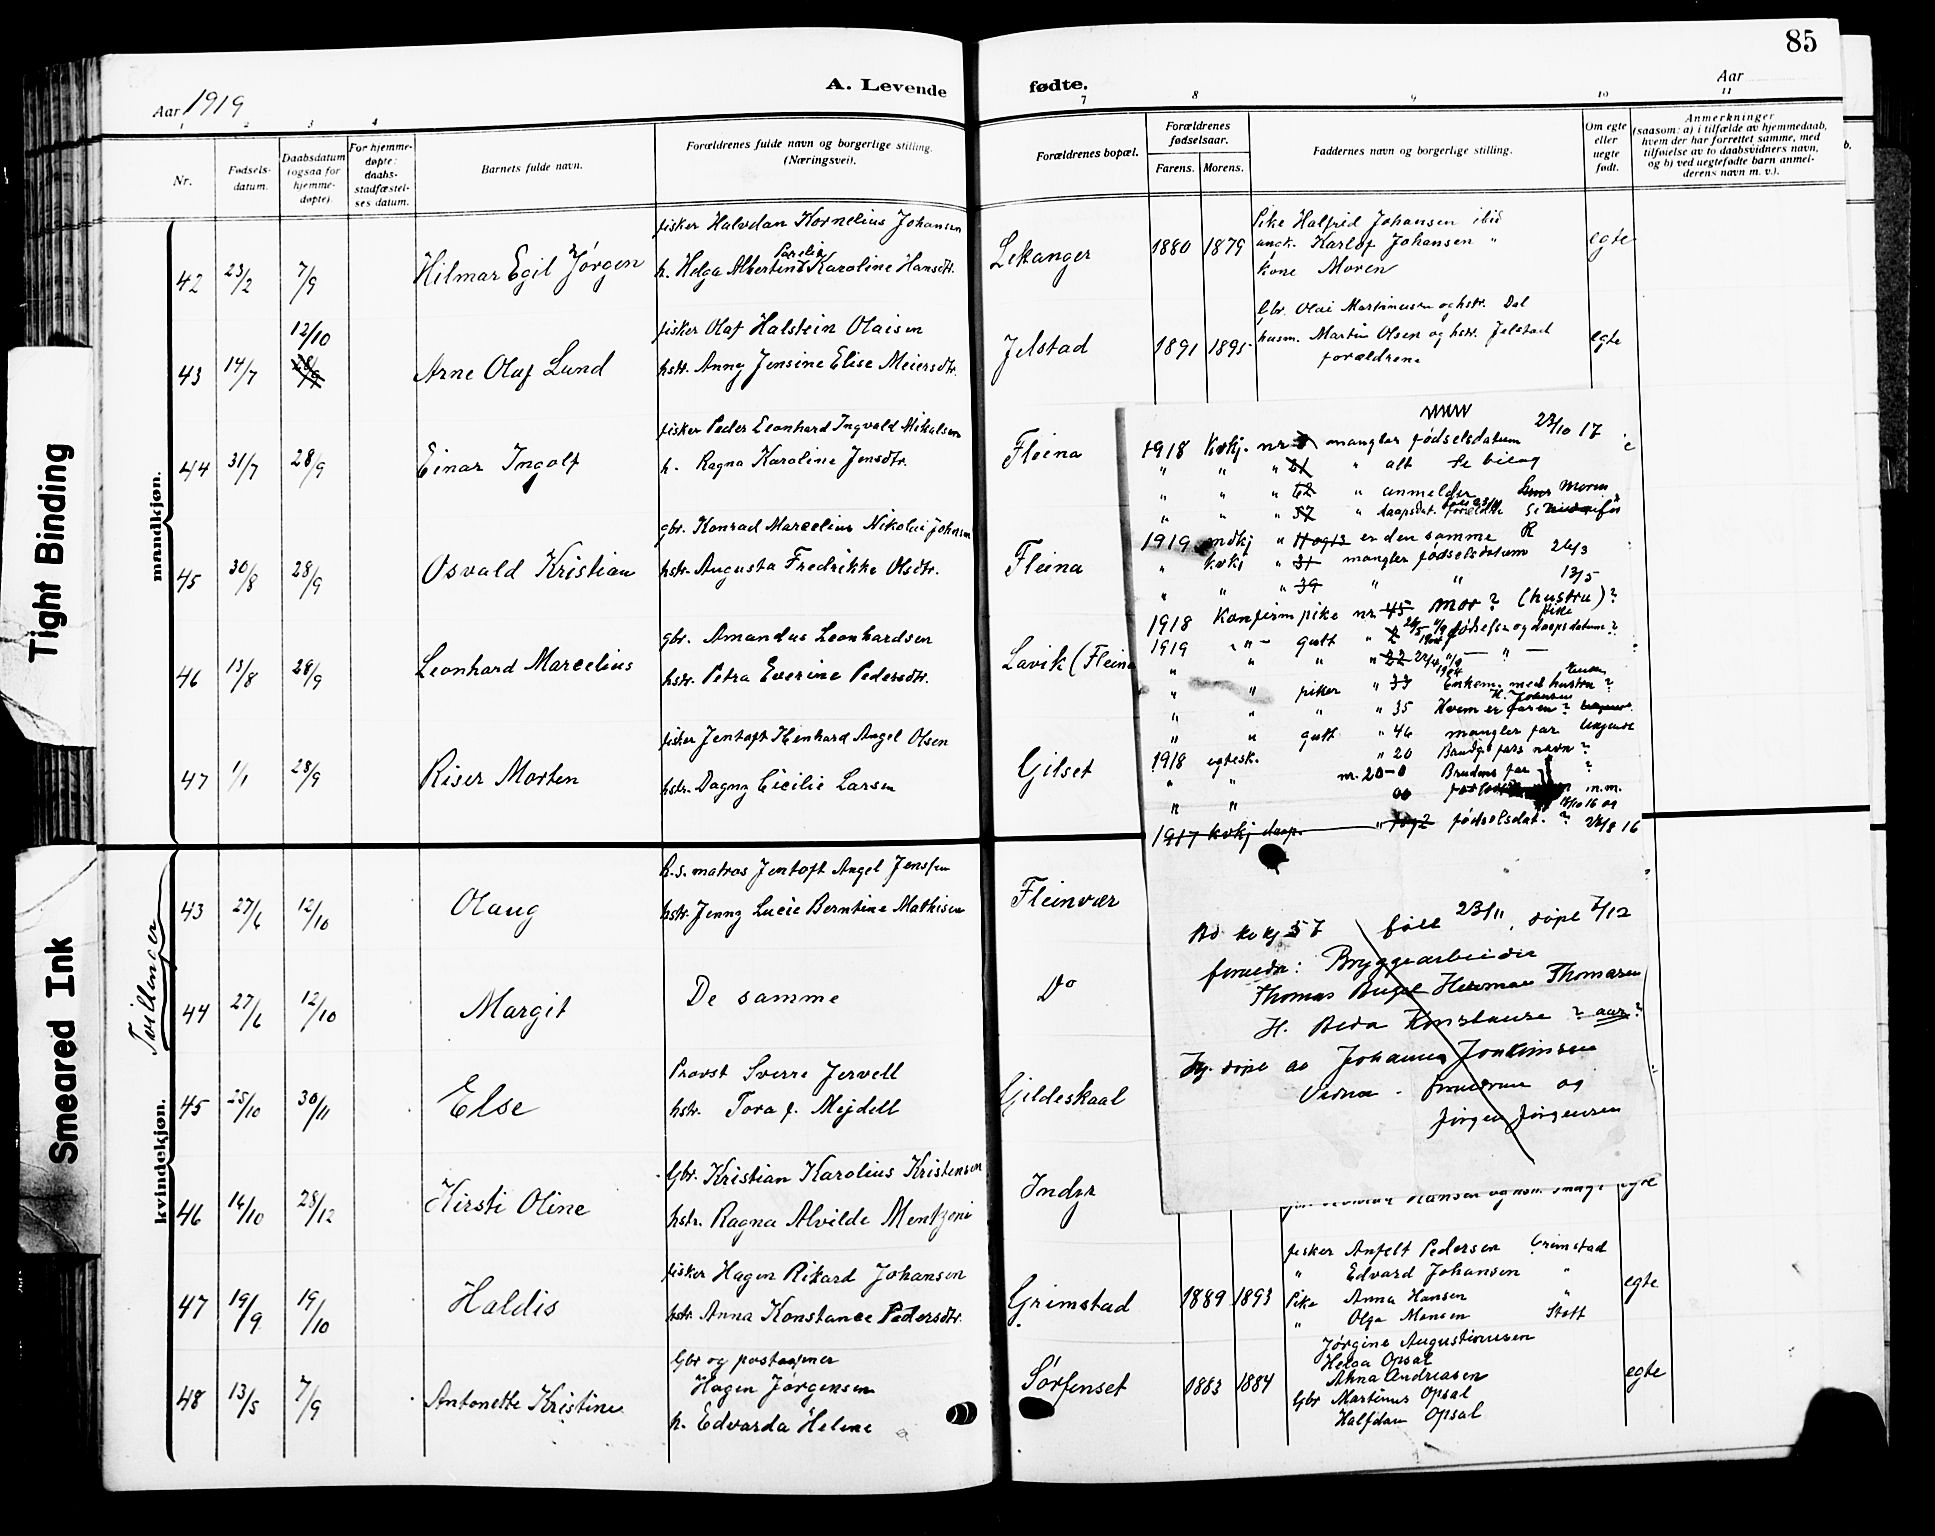 85
Aar 1919
A. Levende
fødte.
Aar
1 2 3 4 7 8 9 10 11
Nr.
Fødsels-
datum.
Daabsdatum
(ogsaa for
hjemme-
døpte).
For hjemme-
døpte:
daabs-
stadfæstel-
ses datum.
Barnets fulde navn.
Forældrenes fulde navn og borgerlige stilling.
(Næringsvei).
Forældrenes bopæl.
Forældrenes
fødselsaar.
Farens. Morens.
Faddernes navn og borgerlige stilling.
Om egte
eller
uegte
født.
Anmerkninger
(saasom: a) i tilfælde av hjemmedaab,
hvem der har forrettet samme, med
tilføielse av to daabsvidners navn,
og b) ved uegtefødte barn anmel-
derens navn m. v.).
Tight Binding
Smeared Ink
mandkjøn.
fisker Halvdan Kornelius Johansen
42 23/2 7/9 Hilmar Egil Jørgen
h. Helga Albertine Karoline Hansdtr.
Lekanger 1880 1879
Pike Halfrid Johansen ibid
ungk. Karlof Johansen "
Kone Moren
egte
12/10
fisker Olaf Halstein Olaisen
43 14/7 28/9 Arne Olaf Lund
hstr. Anny Jensine Elise Meiersdtr.
Jelstad 1891 1895
Gbr. Olai Martinussen og hstr. Dal
husm. Martin Olsen og hstr. Jelstad
forældrene
egte
fisker Peder Leonhard Ingvald Mikalsen
44 31/7 28/9 Einar Ingolf
h. Ragna Karoline Jensdtr.
Fleina
gbr. Konrad Marcelius Nikolai Johnsen
45 30/8 28/9 Osvald Kristian
hstr. Augusta Fredrikke Olsdtr.
Fleina
gbr. Amandus Leonhardsen
46 13/8 28/9 Leonhard Marcelius
hstr. Petra Everine Pedersdtr.
Lavik (Fleina
fisker Jentoft Henhard Angel Olsen
47 1/1 28/9 Riser Morten
hstr. Dagny Cecilie Larsen
Gilset
Tvillinger
kvindekjøn.
R.S. matros Jentoft Angel Jenssen
43 27/6 12/10 Olaug
hstr. Jenny Lucie Berntine Mathisen
Fleinvær
44 27/6 12/10 Margit
De samme
Do
Provst Sverre Jervell
45 25/10 30/11 Else
hstr. Tora f. Mejdell
Gildeskaal
Gbr. Kristian Karolius Kristensen
46 14/10 28/12 Kirsti Oline
hstr. Ragna Alvilde Mentzoni
Indyr
egte
fisker Hagen Rikard Johansen
47 19/9 19/10 Haldis
hstr. Anna Konstance Pedersdtr.
Grimstad 1889 1893
fisker Anfelt Pedersen Grimstad
" Edvard Johansen "
Pike Anna Hansen "
" Olga Monsen Støtt
egte
Gbr og postaapner
48 13/5 7/9 Antonette Kristine
Hagen Jørgensen
h. Edvarda Helene
Sørfenset 1883 1884
Jørgine Augustinussen
Helga Opsal
Anna Andreasen
Gbr Martinus Opsal
Halfdan Opsal
egte
1918 Kvkj. nr mangler fødselsdatum 23/10 17
" " " 21 " alt Se bilag
" " " 62 " anmelder Moren
" " " 57 " daapsdat. forældre
1919 mdkj " 11 og 13 er den samme R
" kvkj " 31 mangler fødselsdatum 26/3
" " " 39 " " 13/5
1918 Konfirm pike nr 45 Mor? (hustru)?
1919 " gutt " 2 fødsels og daapsdatum?
" " " " 22 "
" " piker " 33 Enkem. med hustru?
" " " " 35 Hvem er faren?
" " gutt " 46 mangler far Ukjendt
1918 egtesk. " 20 Brudgs fars navn?
" " nr. 20-0 Brudens far ?
" "
1917 kvkj daap. " fødselsdat. ? 22/8 16
kvkj 57 født 23/11, døpt 7/12
foreldr: Bryggearbeider
Thomas Herman Thomasen
H. Beda Konstanse ? aar?
Hj. døpt av Johanna Joakimsen
Vidne - foreldrene og
Jørgen Jørgensen